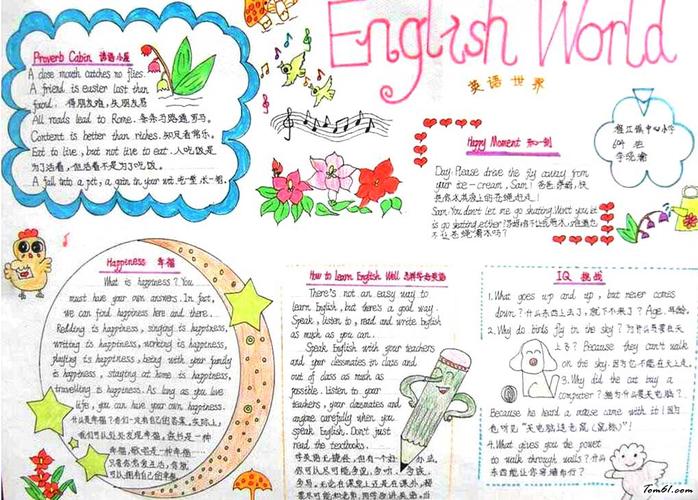 English World
英语世界
Proverb Cabin 谚语小屋
A close mouth catches no flies.
A friend is easier lost than
found. 得朋友难，失朋友易
All roads lead to Rome. 条条马路通罗马.
Content is better than riches. 知足者常乐.
Eat to live, but not live to eat. 人吃饭是
为了活着，但活着不是为了吃饭.
A fall into a pit, a gain in your wit. 吃一堑，长一智.
Happy Moment 开心一刻
Day: Please drive the fly away from
your ice-cream, Sam!
Sam: You don't let me go skating. Won't you let
is go skating either?
Happiness 幸福
What is happiness? You
must have your own answers. In fact,
we can find happiness here and there.
Redding is happiness, singing is happiness,
writing is happiness, working is happiness,
playing is happiness, being with your family
is happiness, staying at home is happiness,
travelling is happiness. As long as you love
life, you can have your own happiness.
什么是幸福？你们一定有自己的答案。实际上，
我们可以到处发现幸福。
幸福，歌唱是一种幸福
只要你热爱生活，你就
可以拥有自己的幸福
How to Learn English Well 怎样学好英语
There's not an easy way to
learn English, but there's a good way.
Speak, listen to, read and write English
as much as you can.
Speak English with your teachers
and your classmates in class and
out of class as much as
possible. Listen to your
teachers, your classmates and
anyone carefully when you
speak English. Don't just
read the textbooks.
学英语无捷径，但有一个好办法，
你可以尽可能多说，多听，多读，
多写。无论在课堂上还是在课外，
要尽可能和老师、同学多讲英语，当
IQ 挑战
1. What goes up and up, but never comes
down? 什么东西上去了，就下不来了？Age. 年龄
2. Why do birds fly in the sky? 为什么鸟要在天
上飞？Because they can't walk
on the sky. 因为它不能在天上走.
3. Why did the cat buy a
computer? 猫为什么要买电脑？
Because he heard a mouse came with it! 因为
他听见“买电脑送老鼠（鼠标）”！
4. What gives you the power
to walk through walls? 什么
东西能让你穿墙而行？
Tom61.com